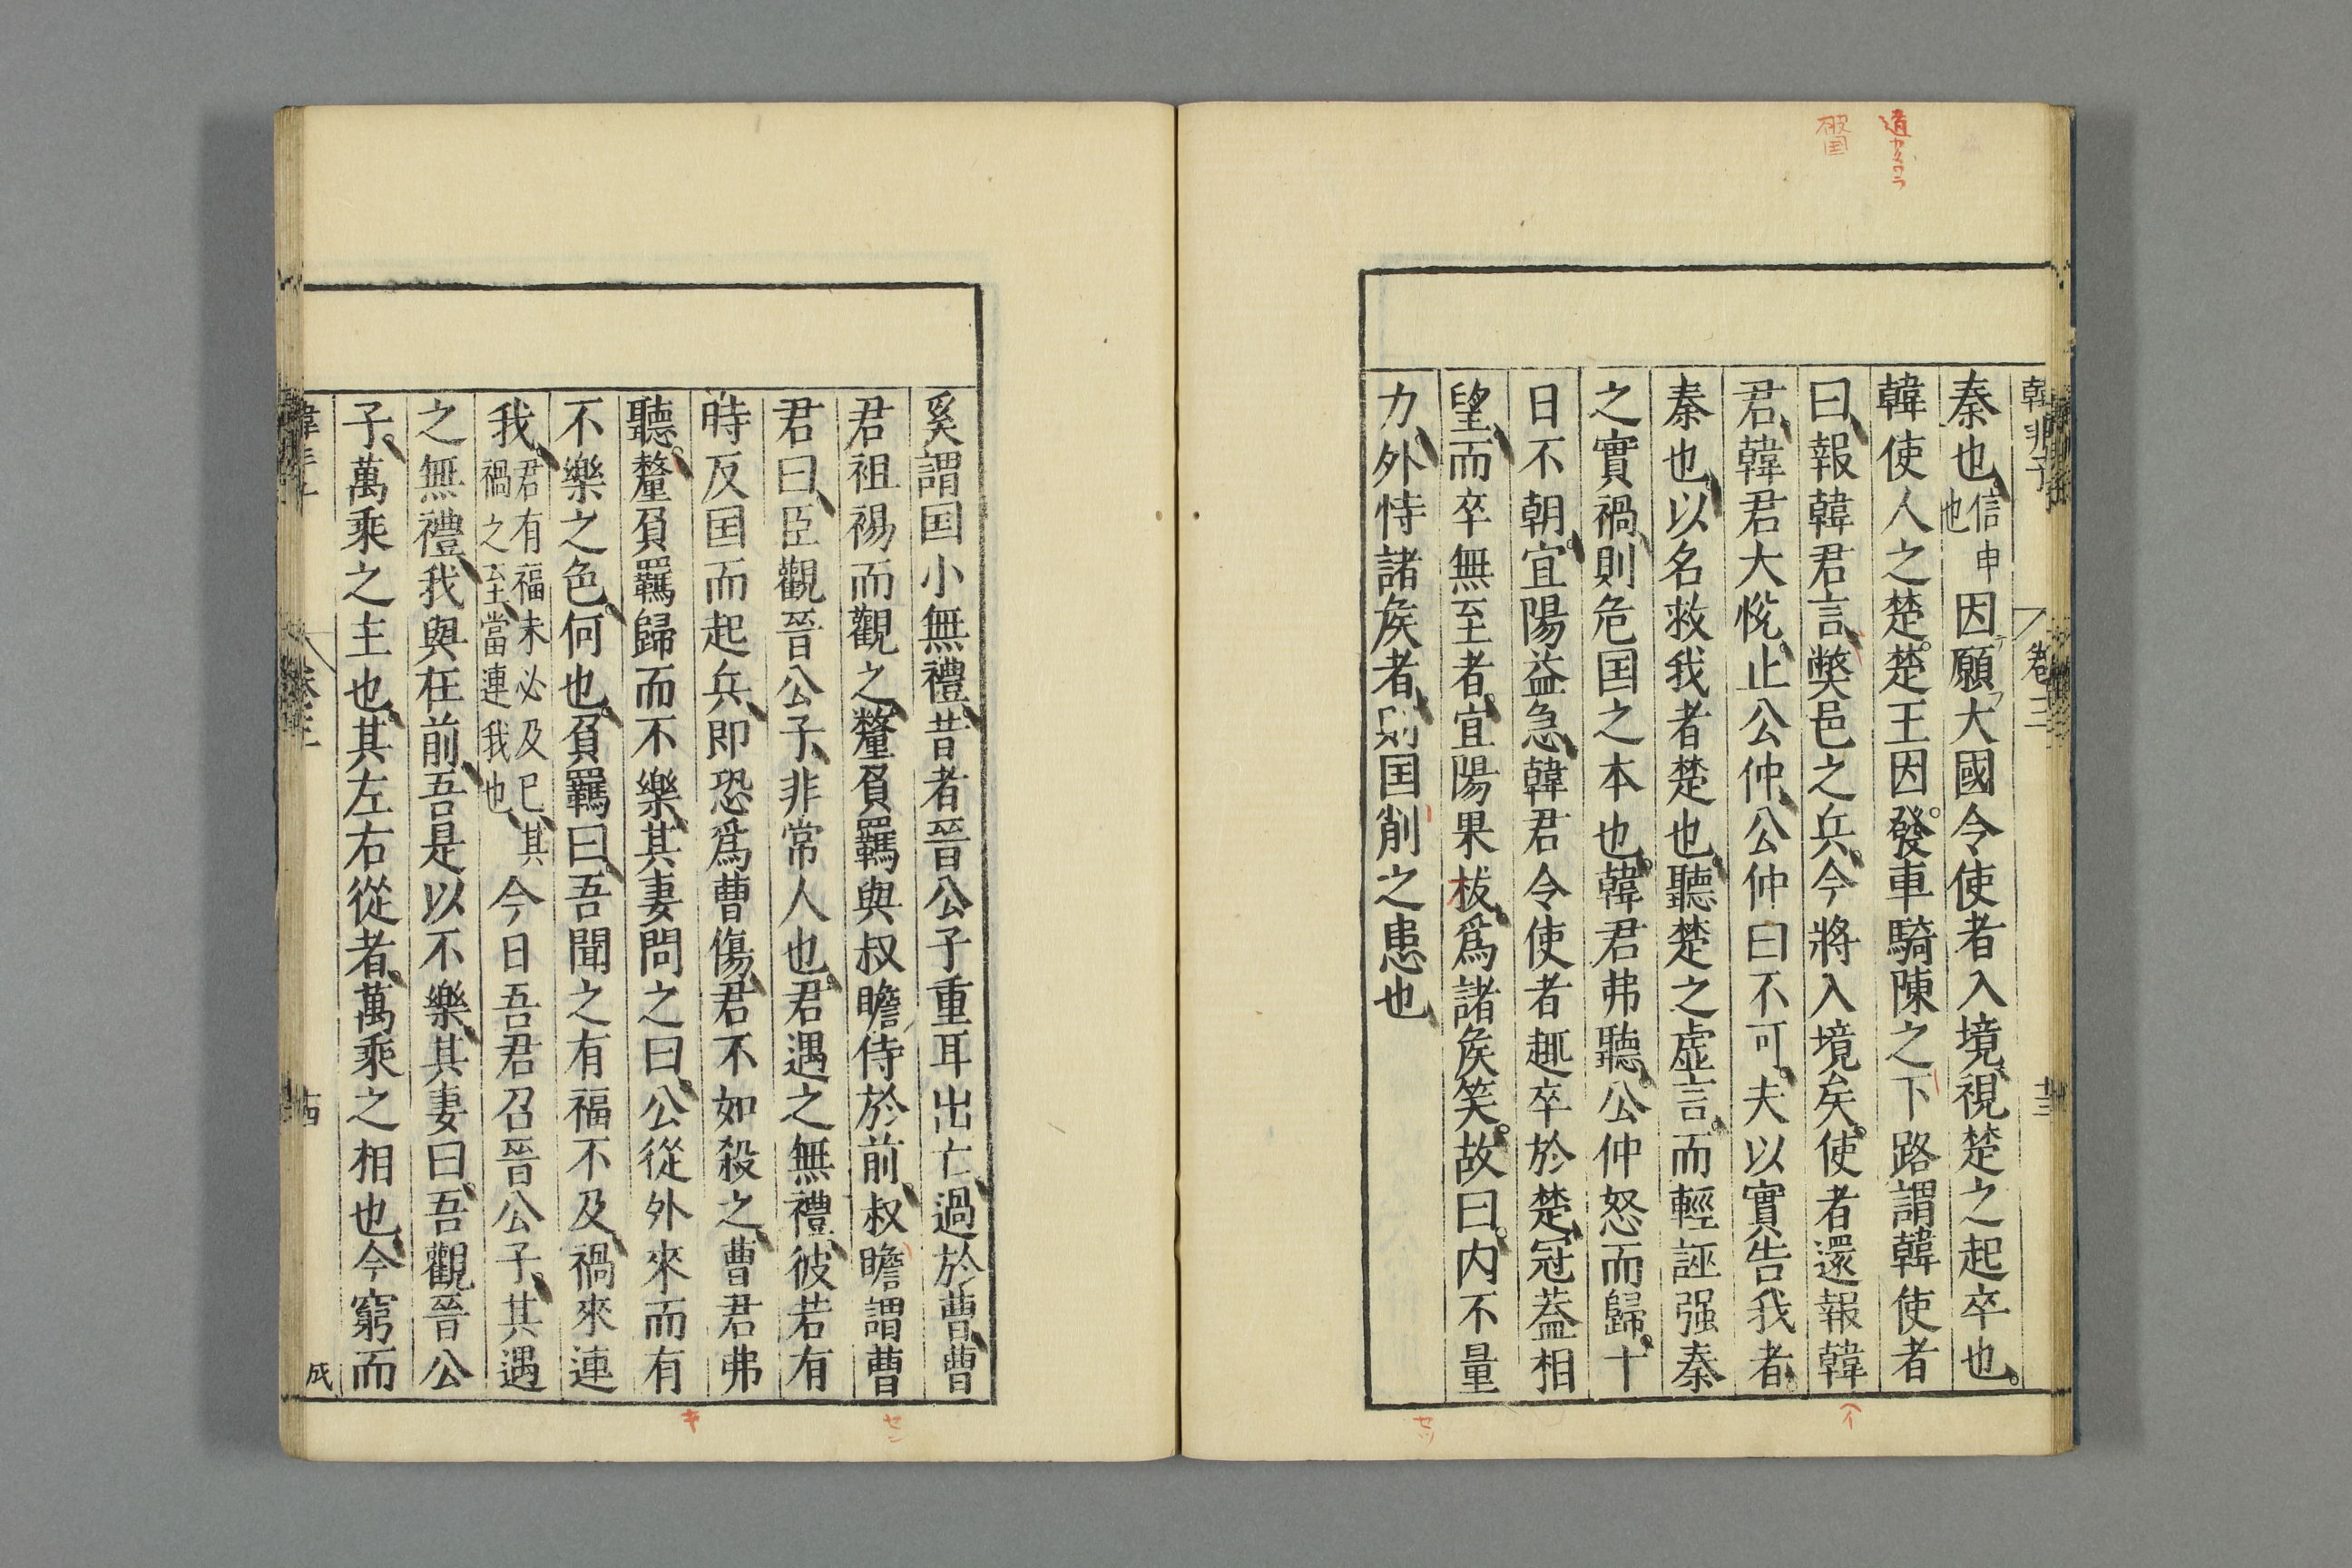 韓非子 卷三 十三
秦也信申也因願大國令使者入境視楚之起卒也。
韓使人之楚。楚王因發車騎陳之下路謂韓使者
曰報韓君言獘邑之兵今將入境矣。使者還報韓
君韓君大悅止公仲公仲曰不可。夫以實告我者。
秦也以名救我者楚也聽楚之虛言。而輕誣强秦
之實禍則危囯之本也韓君弗聽公仲怒而歸十
日不朝宜陽益急韓君令使者趣卒於楚冠蓋相
望而卒無至者。宜陽果拔爲諸矦笑。故曰。内不量
力外恃諸矦者則囯削之患也
奚謂囯小無禮昔者晉公子重耳出亡過於曹曹
君袒裼而觀之釐負羈與叔瞻侍於前。叔瞻謂曹
君曰臣觀晉公子非常人也君遇之無禮彼若有
時反囯而起兵即恐爲曹傷君不如殺之曹君弗
聽。釐負羈歸而不樂其妻問之曰公從外來而有
不樂之色何也負羈曰吾聞之有福不及禍來連
我君有福未必及已其禍之至當連我也今日吾君召晉公子其遇
之無禮我與在前吾是以不樂其妻曰吾觀晉公
子萬乘之主也其左右從者萬乘之相也今窮而
卷三 十四
成